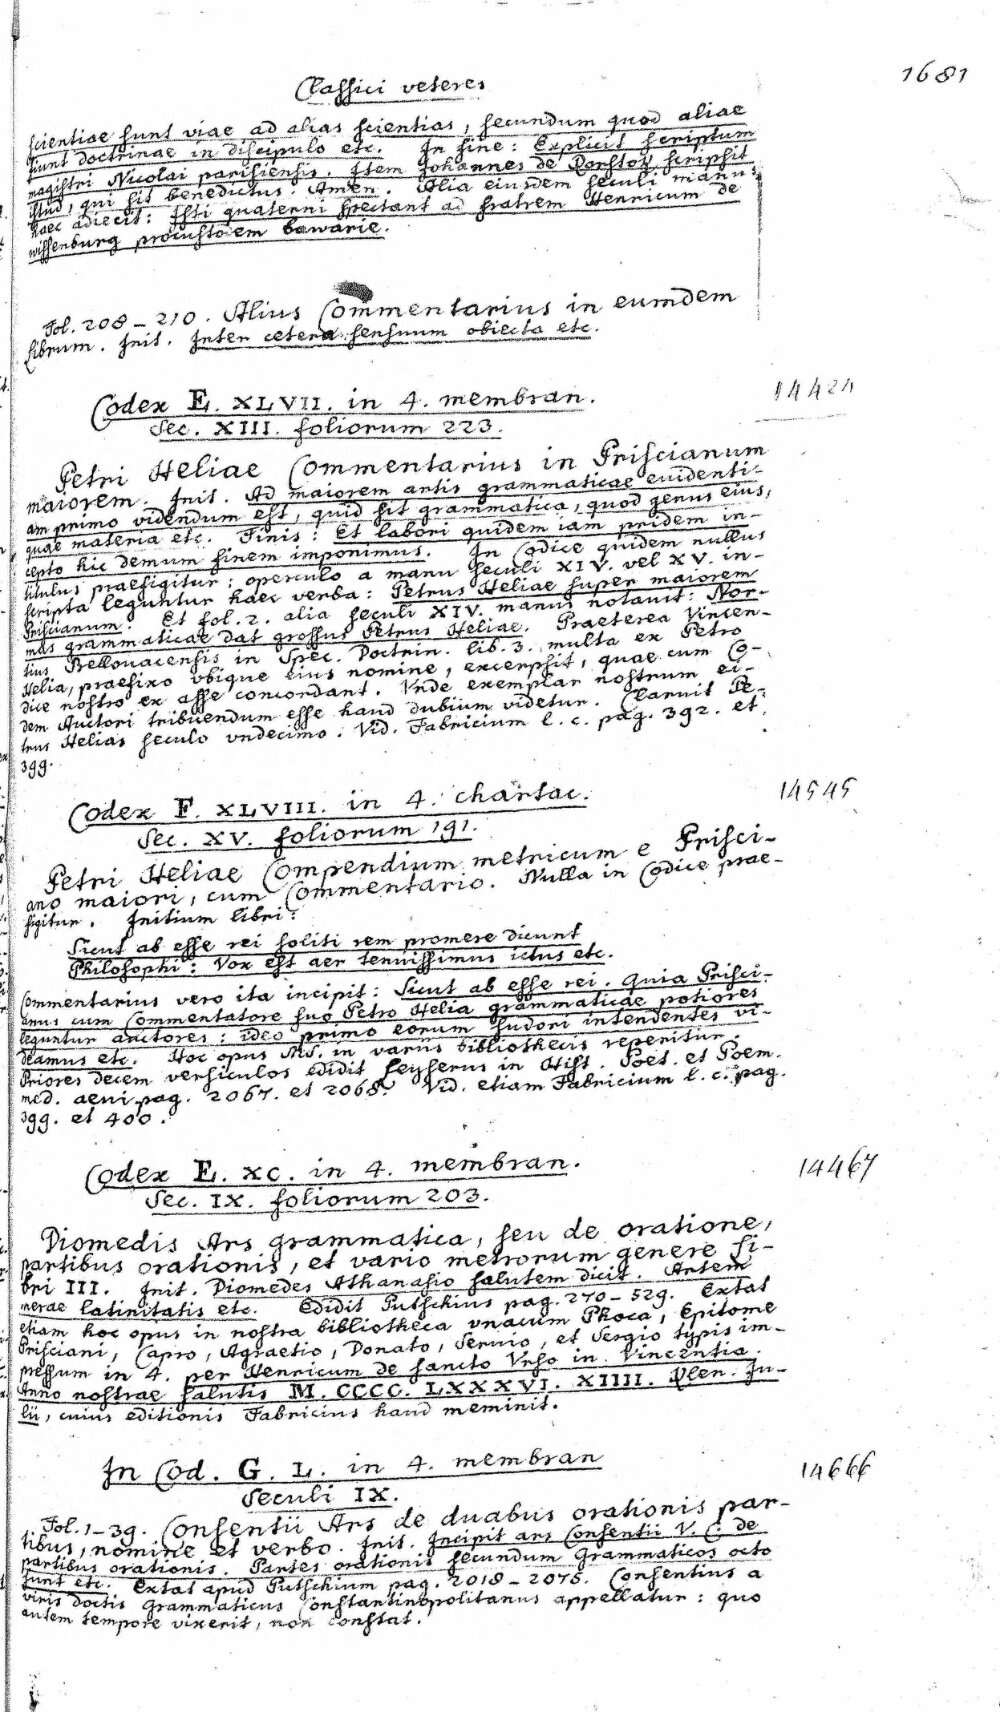 1681
Classici veteres
scientiae sunt viae ad alias scientias, secundum quod aliae
fiunt doctrinae in discipulo etc. In fine: Explicit scriptum
magistri Nicolai parisiensis. Item Johannes de scripsit
istud, qui sit benedictus. Amen. Alia eiusdem seculi manu:
haec adiecit: Isti quaterni spectant ad fratrem Henricum de
wissenburg bawarie.
Fol. 208 – 210. Alius Commentarius in eumdem
librum. Init. Inter cetera sensuum obiecta etc.
Codex E. XLVII. in 4. membran.
14424
Sec. XIII. foliorum 223.
Petri Heliae Commentarius in Priscianum
maiorem. Init. Ad maiorem artis grammaticae euidenti-
am primo videndum est, quid sit grammatica, quod genus eius,
quae materia etc. Finis: Et labori quidem iam pridem in-
cepto hic demum finem imponimus. In Codice quidem nullus
titulus praefigitur: operculo a manu seculi XIV. vel XV. in-
scripta leguntur haec verba: Petrus Heliae super maiorem
Priscianum. Et fol. 2. alia seculi XIV. manus notauit: Nor-
mas grammaticae dat grossus Petrus Heliae. Praeterea Vincen-
tius Bellouacensis in Spec. Doctrin. lib. 3. multa ex Petro
Helia, praefixo vbique eius nomine, excerpsit, quae cum Co-
dice nostro ex asse concordant. Vnde exemplar nostrum ei-
dem Auctori tribuendum esse haud dubium videtur. Claruit Pe-
trus Helias seculo vndecimo. Vid. Fabricium l. c. pag. 392. et
399.
Codex F. XLVIII. in 4. chartac.
14545
Sec. XV. foliorum 191.
Petri Heliae Compendium metricum e Prisci-
ano maiori, cum Commentario. Nulla in Codice prae-
figitur. Initium libri:
Sicut ab esse rei soliti rem promere dicunt
Philosophi: Vox est aer tenuissimus ictus etc.
Commentarius vero ita incipit: Sicut ab esse rei. Quia Prisci-
anus cum Commentatore suo Petro Helia grammaticae potiores
leguntur auctores: ideo primo eorum sudori intendentes vi-
deamus etc. Hoc opus Ms. in variis bibliothecis reperitur.
Priores decem versiculos edidit Leyserus in Hist. Poet. et Poem.
med. aeui pag. 2067. et 2068. Vid. etiam Fabricium l. c. pag.
399. et 400.
Codex E. XC. in 4. membran.
14467
Sec. IX. foliorum 203.
Diomedis Ars grammatica, seu de oratione,
partibus orationis, et vario metrorum genere li-
bri III. Init. Diomedes Athanasio salutem dicit. Artem
merae latinitatis etc. Edidit Putschius pag. 270 – 529. Extat
etiam hoc opus in nostra bibliotheca vnacum Phoca, Epitome
Prisciani, Capro, Agraetio, Donato, Seruio, et Sergio typis im-
pressum in 4. per Henricum de sancto Vrso in Vincentia.
Anno nostrae salutis M. CCCC. LXXXVI. XIIII. Klen. Iu-
lii, cuius editionis Fabricius haud meminit.
In Cod. G. L. in 4. membran
14666
Seculi IX.
Fol. 1–39. Consentii Ars de duabus orationis par-
tibus, nomine et verbo. Init. Incipit ars Consentii V. C. de
partibus orationis. Partes orationis secundum Grammaticos octo
sunt etc. Extat apud Putschium pag. 2018 – 2078. Consentius a
viris doctis Grammaticus Constantinopolitanus appellatur: quo
autem tempore vixerit, non constat.